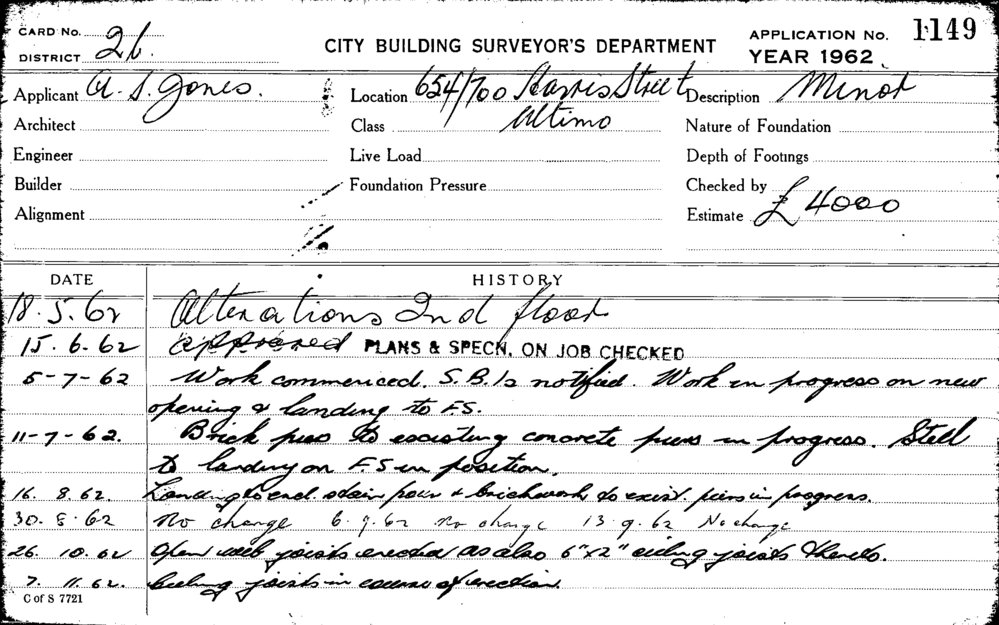 CARD No.
DISTRICT 26
CITY BUILDING SURVEYOR'S DEPARTMENT
APPLICATION No. 1149
YEAR 1962
Applicant A. S. Jones.
Location 654/700 Harris Street
Description Minor
Architect
Class Ultimo
Nature of Foundation
Engineer
Live Load
Depth of Footings
Builder
Foundation Pressure
Checked by
Alignment
Estimate £4000
DATE HISTORY
18.5.62 Alterations 2nd floor
15.6.62 approved PLANS & SPECN. ON JOB CHECKED
5-7-62 Work commenced. S.B.1s notified. Work in progress on new
opening & landing to F.S.
11-7-62. Brick piers to existing concrete piers in progress. Steel
to landing on F.S in position.
16. 8.62. Landing stair & brickwork to exist. piers in progress.
30.8.62 No change 6.9.62 No change 13.9.62 No change
26.10.62 Open web joists erected as also 6"x2" ceiling joists thereto.
7.11.62. Ceiling joists in course of erection.
C of S 7721